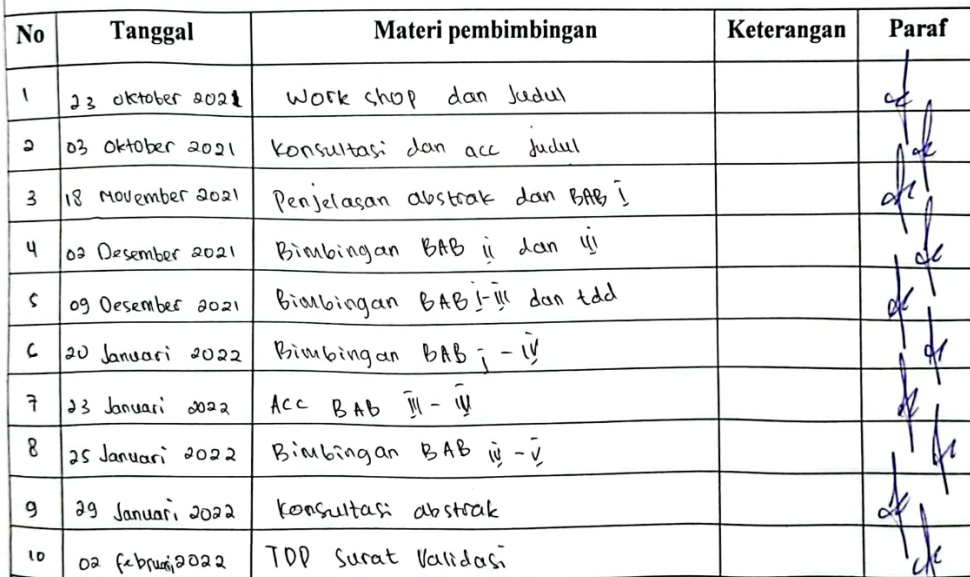 No Tanggal Materi pembimbingan Keterangan Paraf
1 23 oktober 2021 Work shop dan Judul
2 03 Oktober 2021 Konsultasi dan acc Judul
3 18 November 2021 Penjelasan abstrak dan BAB I
4 02 Desember 2021 Bimbingan BAB II dan III
5 09 Desember 2021 Bimbingan BAB I-III dan tdd
6 20 Januari 2022 Bimbingan BAB I - IV
7 23 Januari 2022 ACC BAB III - IV
8 25 Januari 2022 Bimbingan BAB IV - V
9 29 Januari 2022 Konsultasi abstrak
10 02 februari, 2022 TDD Surat Validasi